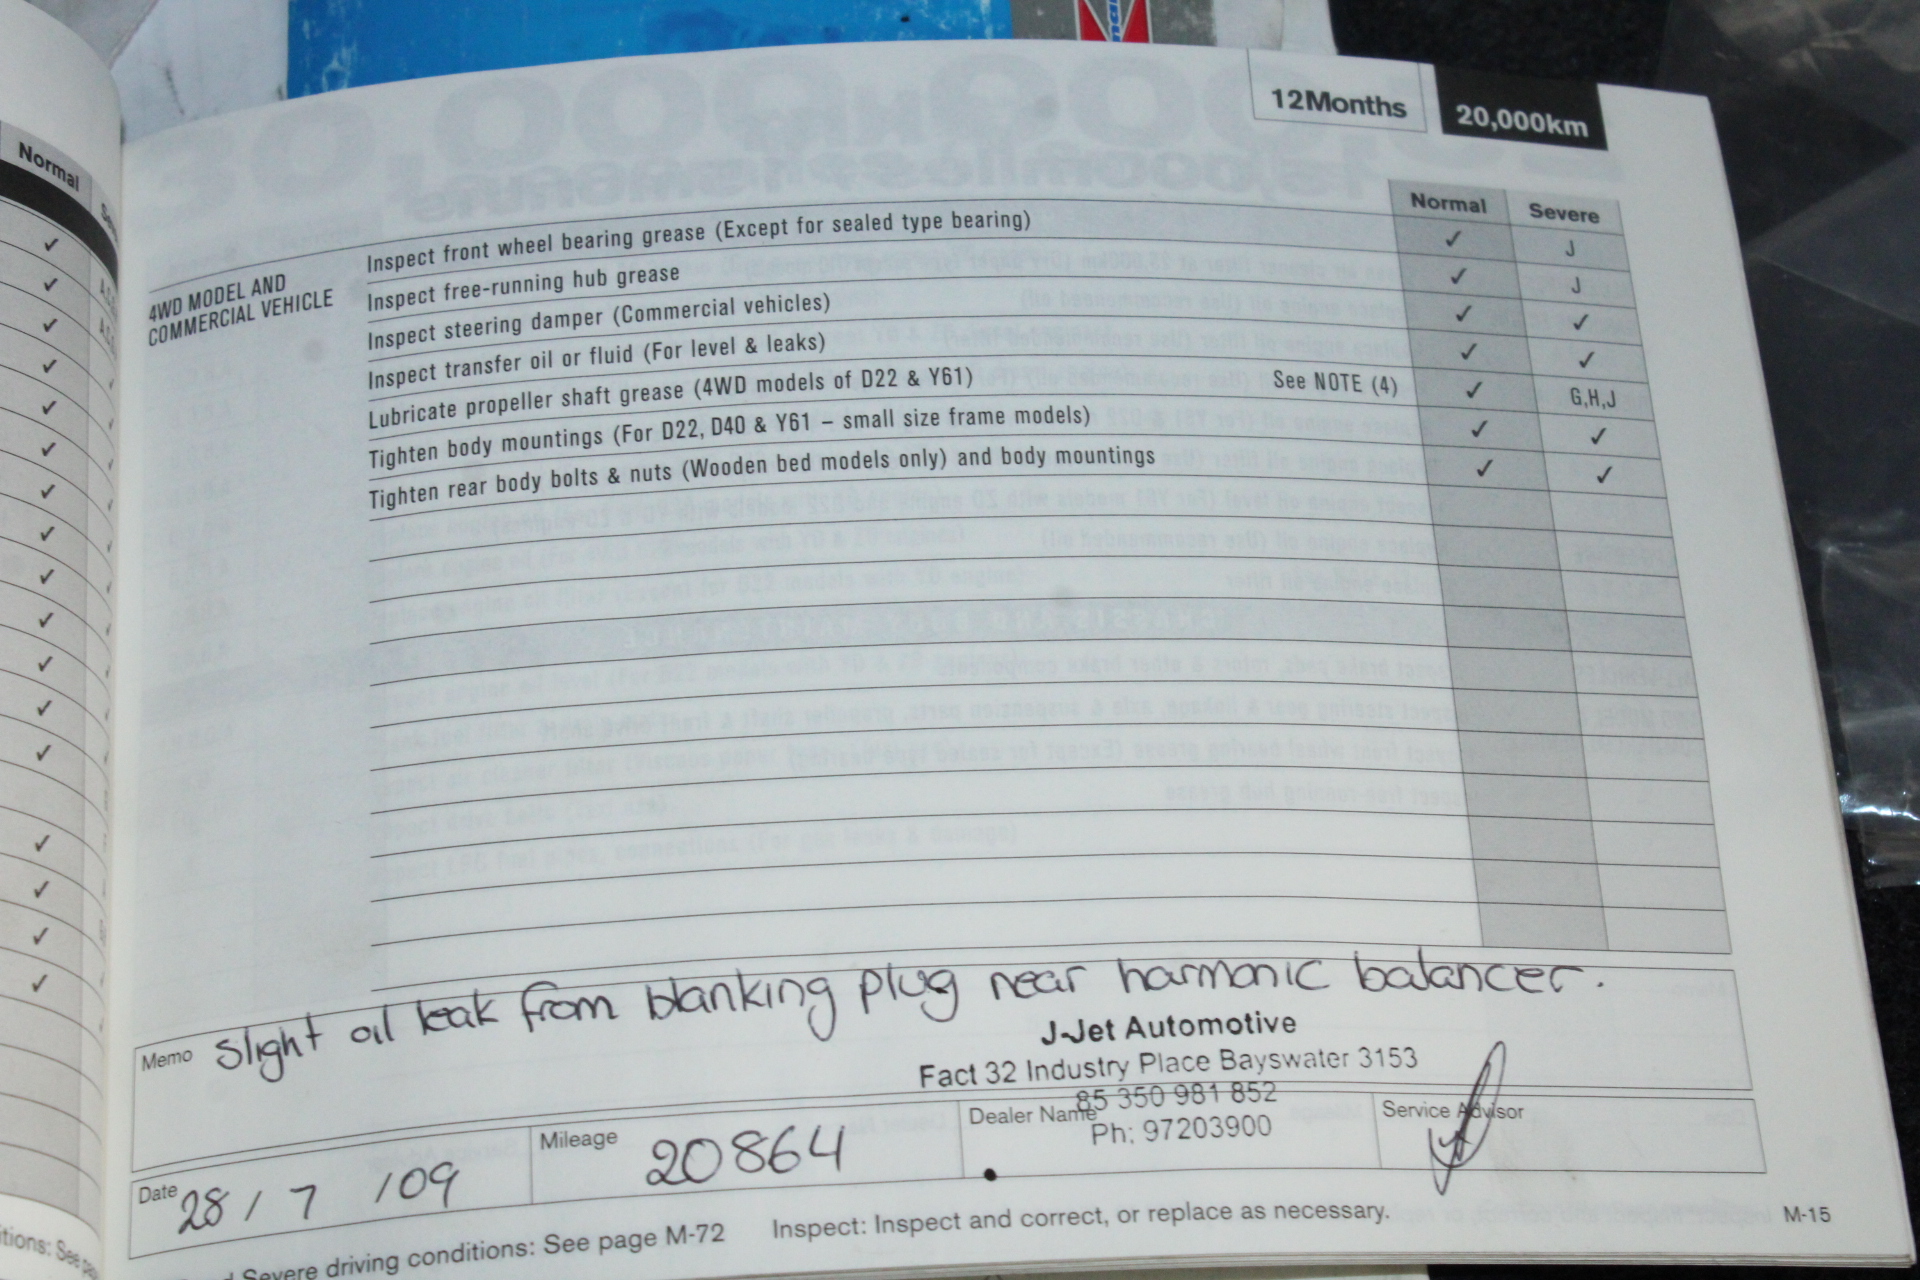 12Months 20,000km
Normal Severe
Normal
4WD MODEL AND
COMMERCIAL VEHICLE
Inspect front wheel bearing grease (Except for sealed type bearing) ✓ J
Inspect free-running hub grease ✓ J
Inspect steering damper (Commercial vehicles) ✓ ✓
Inspect transfer oil or fluid (For level & leaks) ✓ ✓
Lubricate propeller shaft grease (4WD models of D22 & Y61) See NOTE (4) ✓ G,H,J
Tighten body mountings (For D22, D40 & Y61 – small size frame models) ✓ ✓
Tighten rear body bolts & nuts (Wooden bed models only) and body mountings ✓ ✓
Memo slight oil leak from blanking plug near harmonic balancer.
J-Jet Automotive
Fact 32 Industry Place Bayswater 3153
85 350 981 852
Ph: 97203900
Date 28 / 7 / 09
Mileage 20864
Dealer Name
Service Advisor
Severe driving conditions: See page M-72 Inspect: Inspect and correct, or replace as necessary. M-15